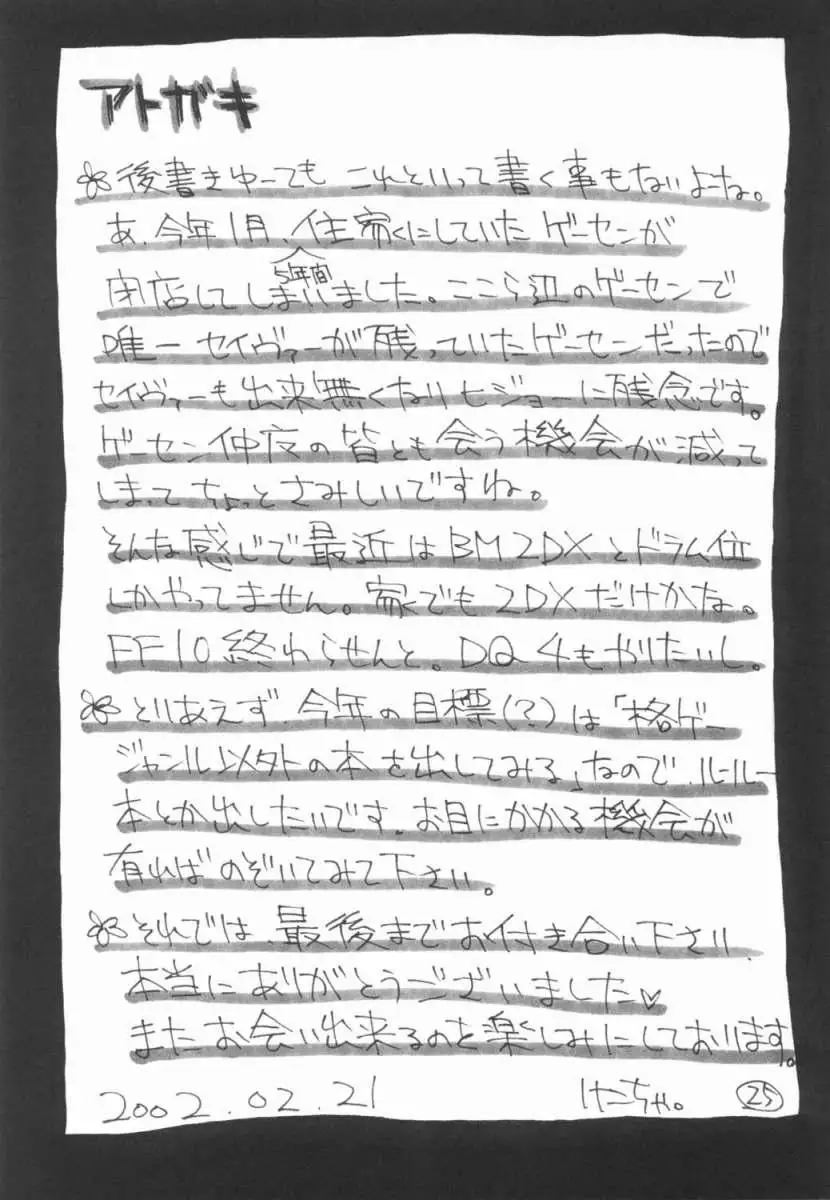 アトガキ
後書きゆーても これといって書く事もないよーね。
あ、今年1月、住家にしていたゲーセンが
5年間
閉店してしまいました。ここら辺のゲーセンで
唯一セイヴァーが残っていたゲーセンだったので
セイヴァーも出来無くなりヒジョーに残念です。
ゲーセン仲間の皆とも会う機会が減って
しまってちょっとさみしいですね。
そんな感じで最近はBM2DXとドラム位
しかやってません。家でも2DXだけかな。
FF10終わらせんと。DQ4もやりたいし。
とりあえず、今年の目標(?)は「格ゲー
ジャンル以外の本を出してみる」なので、ルールー
本とか出したいです。お目にかかる機会が
有ればのぞいてみて下さい。
それでは、最後までお付き合い下さり、
本当にありがとうございました♡
またお会い出来るのを楽しみにしております。
2002.02.21 けーちゃ。 25